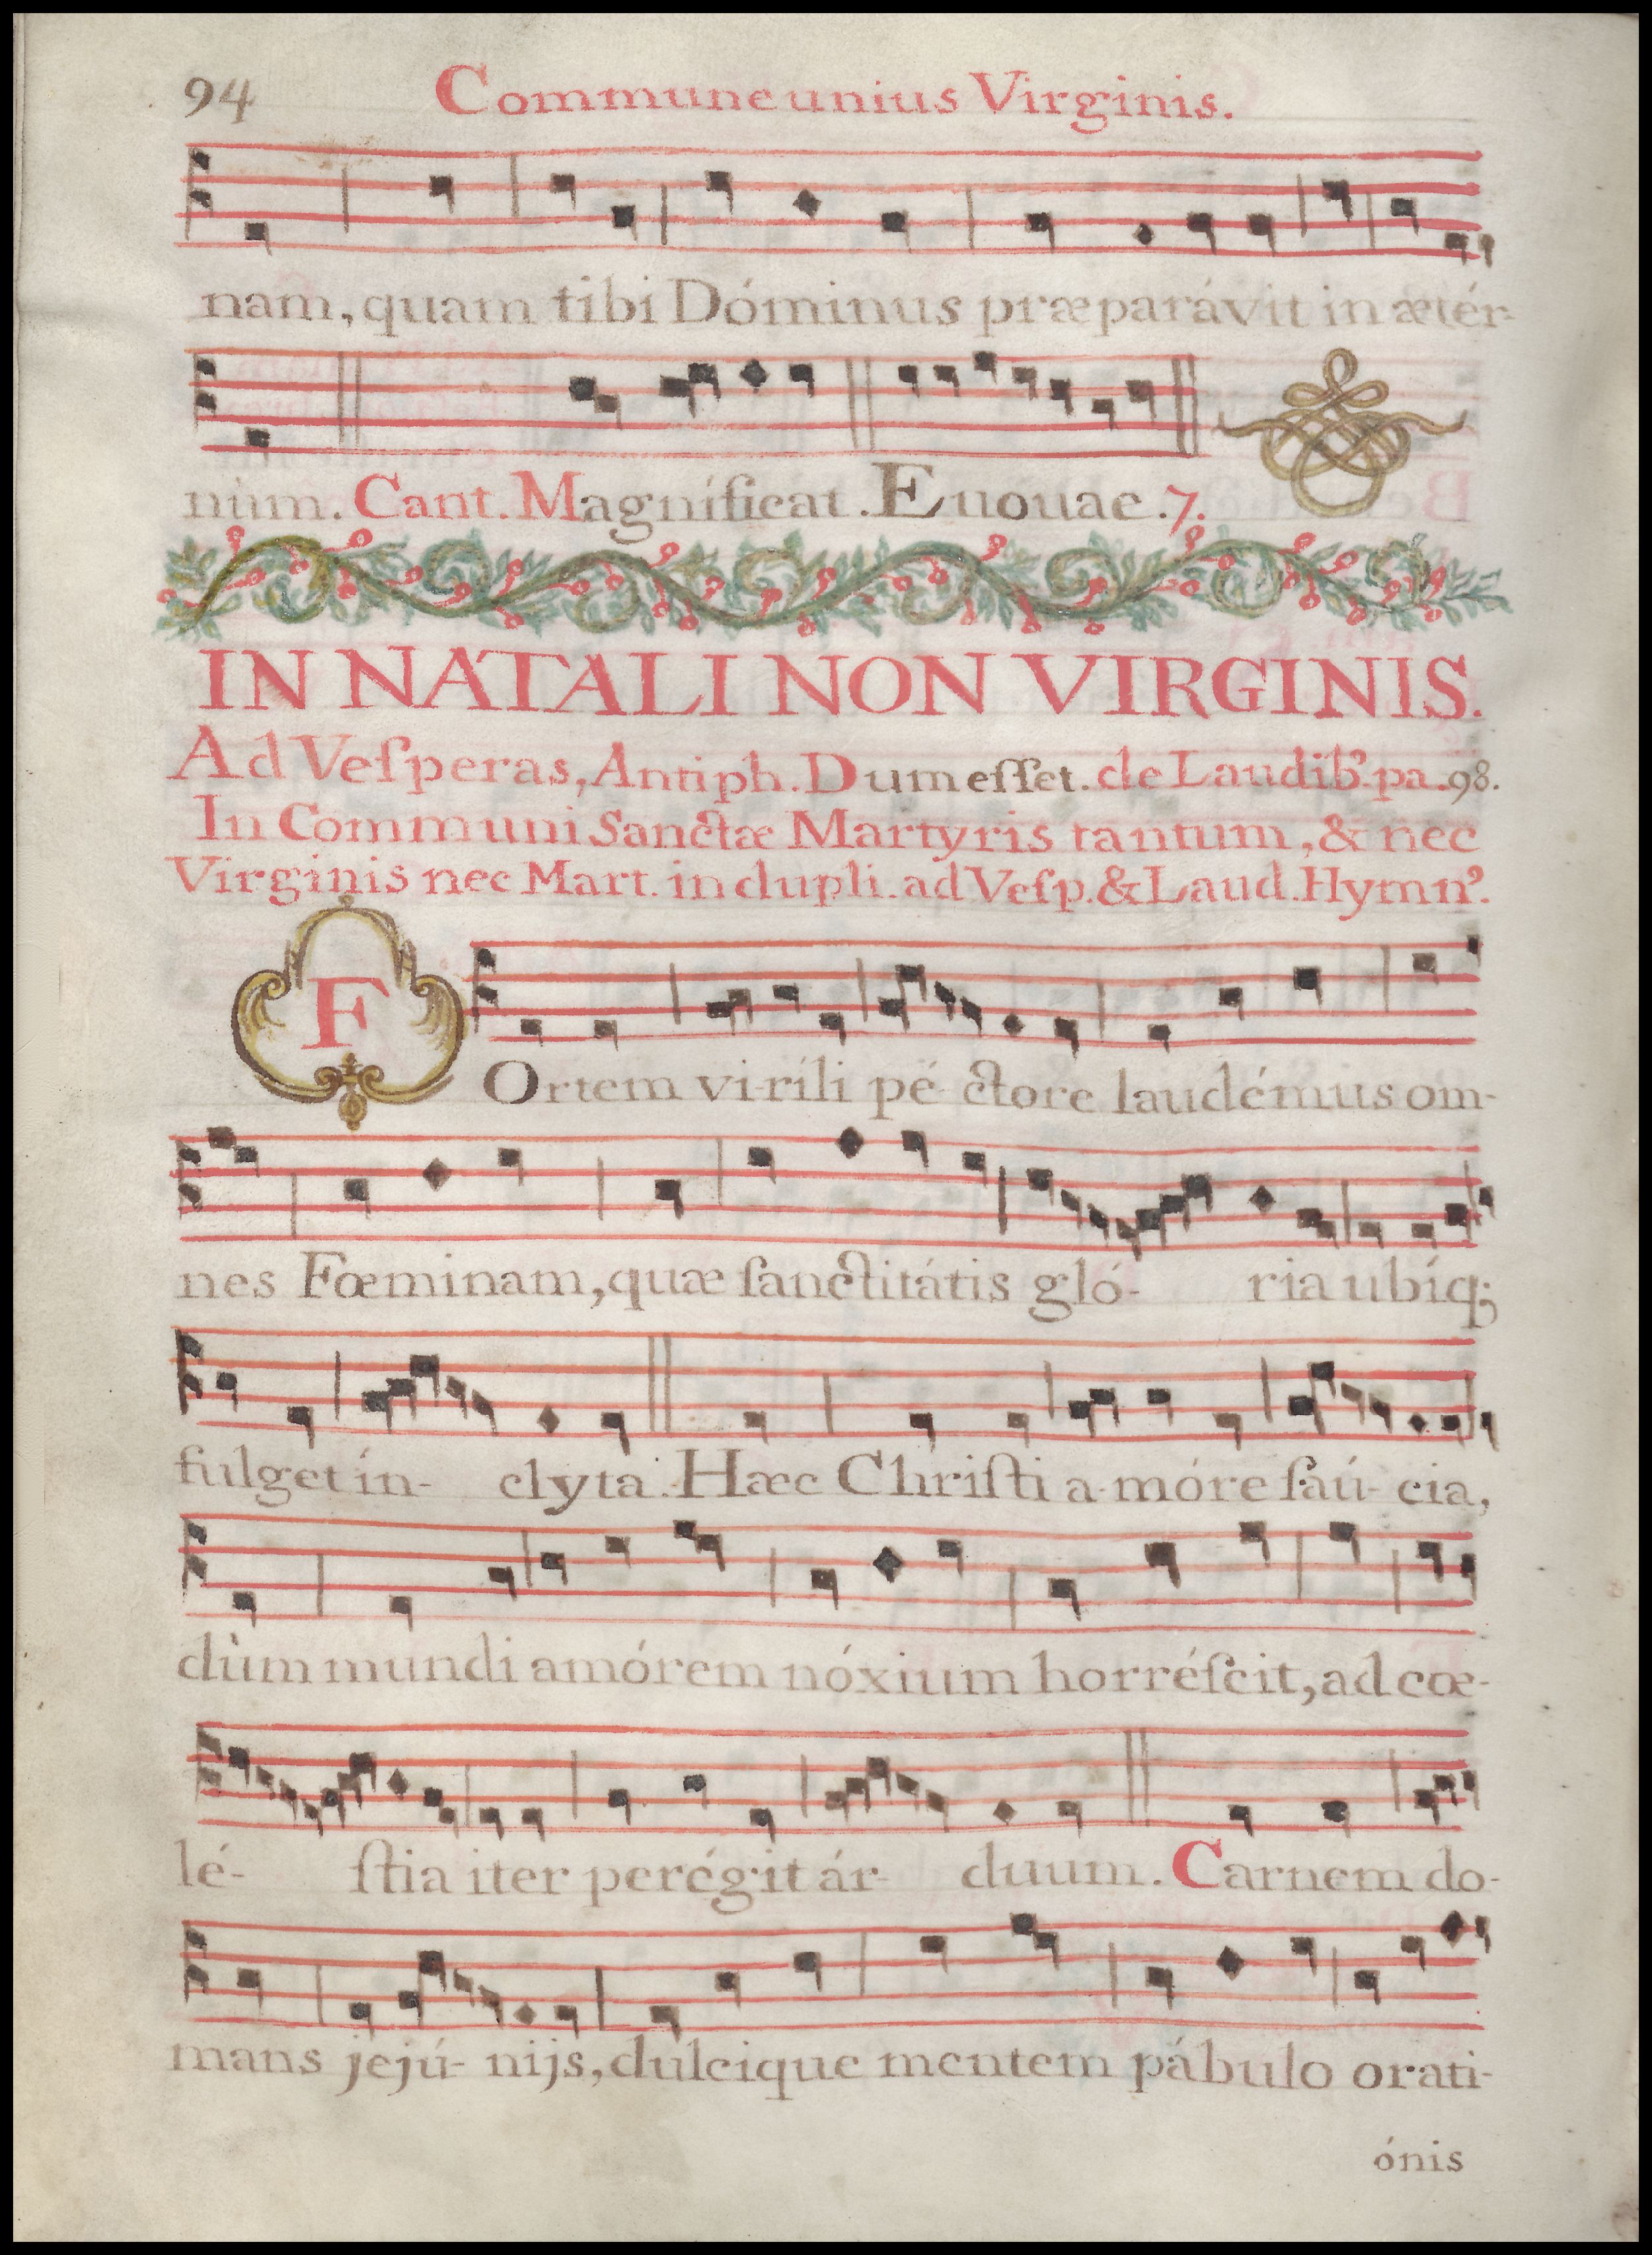 94 Commune unius Virginis.
nam, quam tibi Dóminus præparávit in ætér-
num. Cant. Magníficat. Euouae. 7.
IN NATALI NON VIRGINIS.
Ad Veſperas, Antiph. Dum eſſet. de Laudibꝰ. pa. 98.
In Communi Sanctæ Martyris tantum, & nec
Virginis nec Mart. in dupli. ad Veſp. & Laud. Hymnꝰ.
FOrtem vi-ríli pé-ctore laudémus om-
nes Fœminam, quæ ſanctitátis gló-ria ubíq;
fulget ín-clyta. Hæc Chriſti a-móre ſaú-cia,
dùm mundi amórem nóxium horréſcit, ad cœ-
lé-ſtia iter perégit ár-duum. Carnem do-
mans jejú-nijs, dulcique mentem pábulo orati-
ónis